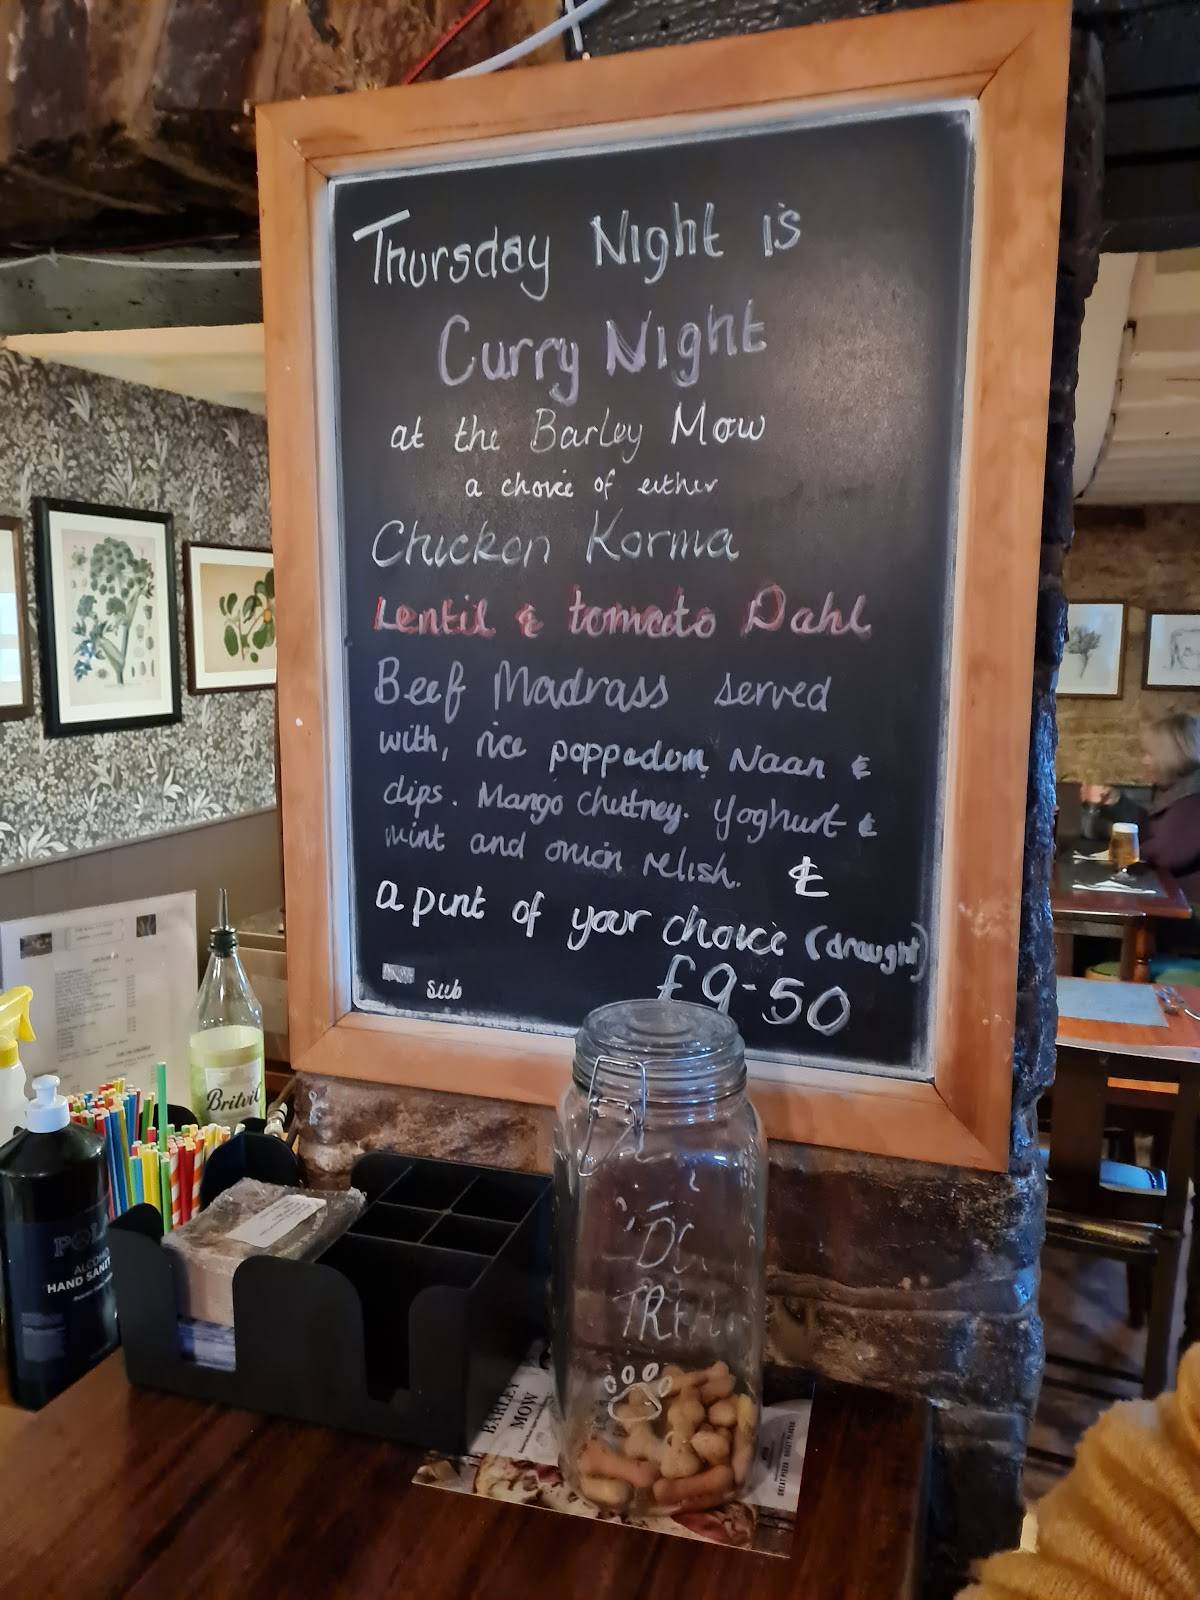 Thursday Night is
Curry Night
at the Barley Mow
a choice of either
Chicken Korma
Lentil & tomato Dahl
Beef Madrass served
with, rice poppadum Naan &
dips. Mango Chutney. Yoghurt &
mint and onion relish. &
a pint of your choice (draught)
sub £9-50
Britvic
ALCOHOL
HAND SANI
BARLEY
MOW